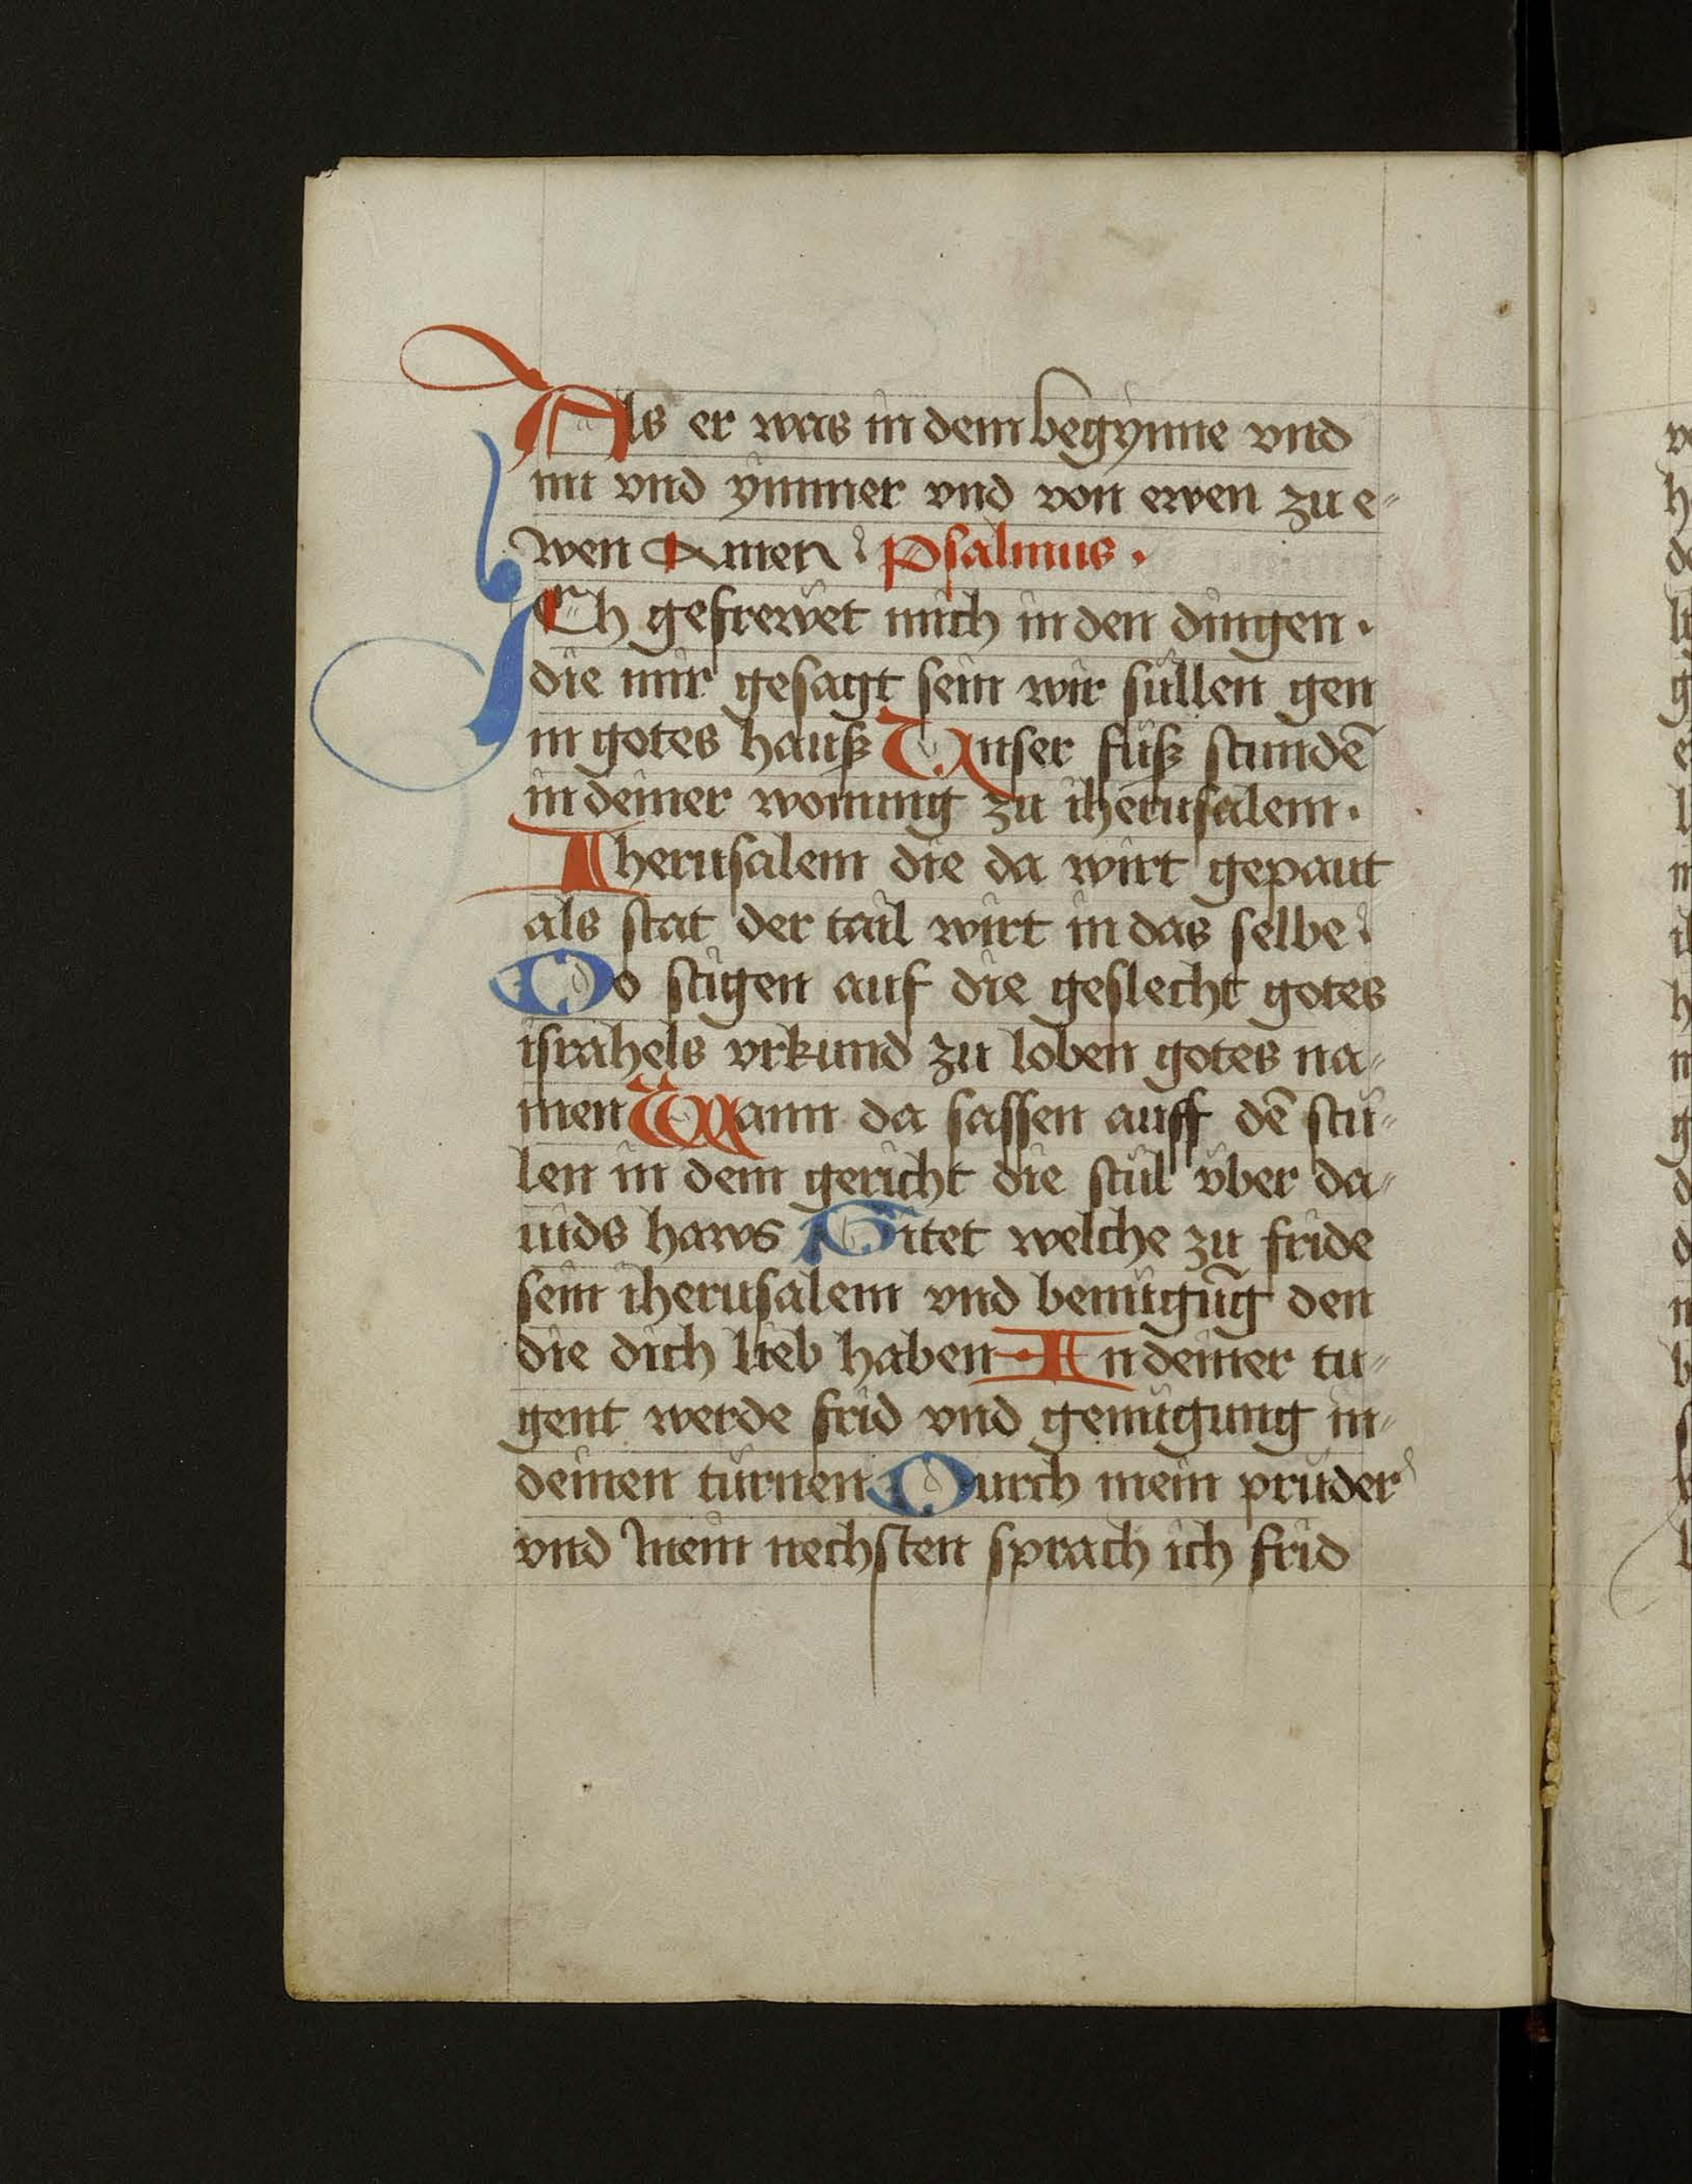 Als er was in dem begynne vnd
nu vnd ymmer vnd von ewen zu e-
wen Amen Psalmus .
ICh gefrewet mich in den dingen .
die mir gesagt sein wir sullen gen
in gotes hauß Vnser fuß stundē
in deiner wonung zu iherusalem .
Iherusalem die da wirt gepaut
als stat der tail wirt in das selbe
Do stigen auf die geslecht gotes
israhels vrkund zu loben gotes na-
men Wann da sassen auff dē stu-
len in dem gericht die stul vber da-
uids haws Bitet welche zu fride
sein iherusalem vnd benugūg den
die dich lieb haben In deiner tu-
gent werde frid vnd genugung in-
deinen turnen Durch mein pruder
vnd mein nechsten sprach ich frid